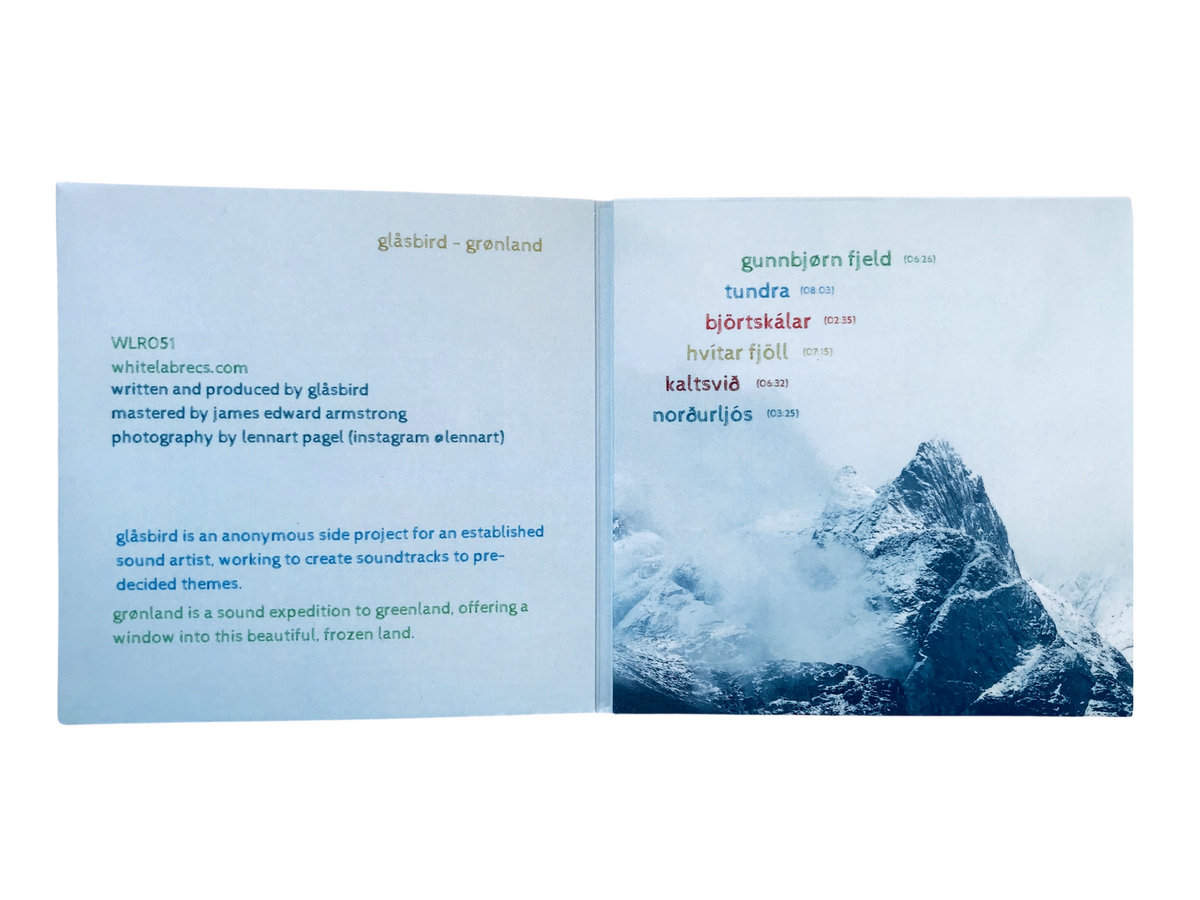 glåsbird - grønland
WLR051
whitelabrecs.com
written and produced by glåsbird
mastered by james edward armstrong
photography by lennart pagel (instagram ølennart)
glåsbird is an anonymous side project for an established
sound artist, working to create soundtracks to pre-
decided themes.
grønland is a sound expedition to greenland, offering a
window into this beautiful, frozen land.
gunnbjørn fjeld (06:26)
tundra (08:03)
björtskálar (02:35)
hvítar fjöll (07:15)
kaltsvið (06:32)
norðurljós (03:25)